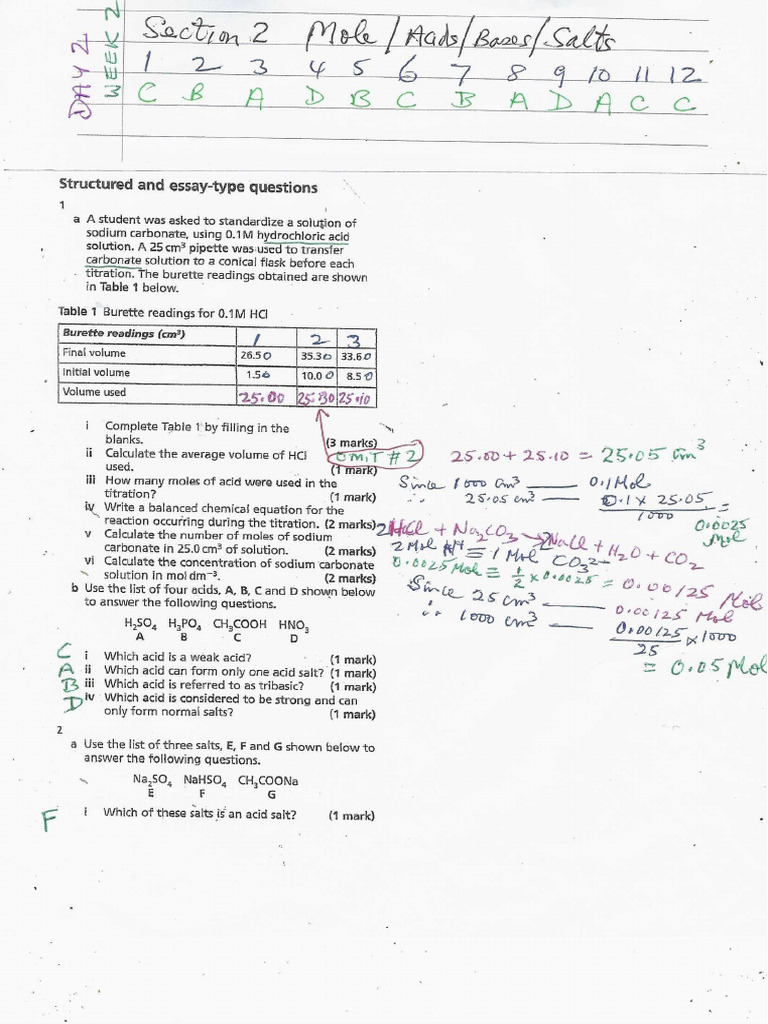 DAY 2
WEEK 2
Section 2 Mole/Acids/Bases/Salts
1 2 3 4 5 6 7 8 9 10 11 12
C B A D B C B A D A C C
Structured and essay-type questions
1
a A student was asked to standardize a solution of
sodium carbonate, using 0.1M hydrochloric acid
solution. A 25 cm³ pipette was used to transfer
carbonate solution to a conical flask before each
titration. The burette readings obtained are shown
in Table 1 below.
Table 1 Burette readings for 0.1M HCl
Burette readings (cm³) 1 2 3
Final volume 26.50 35.30 33.60
Initial volume 1.50 10.00 8.50
Volume used 25.00 25.30 25.10
i Complete Table 1 by filling in the
blanks. (3 marks)
ii Calculate the average volume of HCl
used. (1 mark)
OMIT # 2
25.00 + 25.10 = 25.05 cm³
iii How many moles of acid were used in the
titration? (1 mark)
Since 1000 cm³ —— 0.1 Mol
∴ 25.05 cm³ —— 0.1 x 25.05 =
1000
0.0025
Mol
iv Write a balanced chemical equation for the
reaction occurring during the titration. (2 marks)
2HCl + Na₂CO₃ → 2NaCl + H₂O + CO₂
v Calculate the number of moles of sodium
carbonate in 25.0 cm³ of solution. (2 marks)
2 Mol H⁺ ≡ 1 Mol CO₃²⁻
0.0025 Mol ≡ ½ x 0.0025 = 0.00125 Mol
vi Calculate the concentration of sodium carbonate
solution in mol dm⁻³. (2 marks)
Since 25 cm³ —— 0.00125 Mol
∴ 1000 cm³ —— 0.00125 x 1000
25
= 0.05 Mol
b Use the list of four acids, A, B, C and D shown below
to answer the following questions.
H₂SO₄ H₃PO₄ CH₃COOH HNO₃
A B C D
C i Which acid is a weak acid? (1 mark)
A ii Which acid can form only one acid salt? (1 mark)
B iii Which acid is referred to as tribasic? (1 mark)
D iv Which acid is considered to be strong and can
only form normal salts? (1 mark)
2
a Use the list of three salts, E, F and G shown below to
answer the following questions.
Na₂SO₄ NaHSO₄ CH₃COONa
E F G
F i Which of these salts is an acid salt? (1 mark)